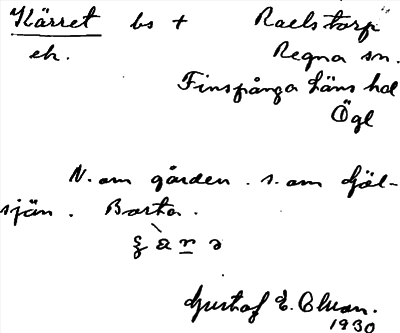 Kärret bs + Raelstorp
ek. Regna sn.
Finspånga läns hd
Ögl
N. om gården. s. om Gjäl-
sjön. Borta.
Gustaf E. Olsson.
1930